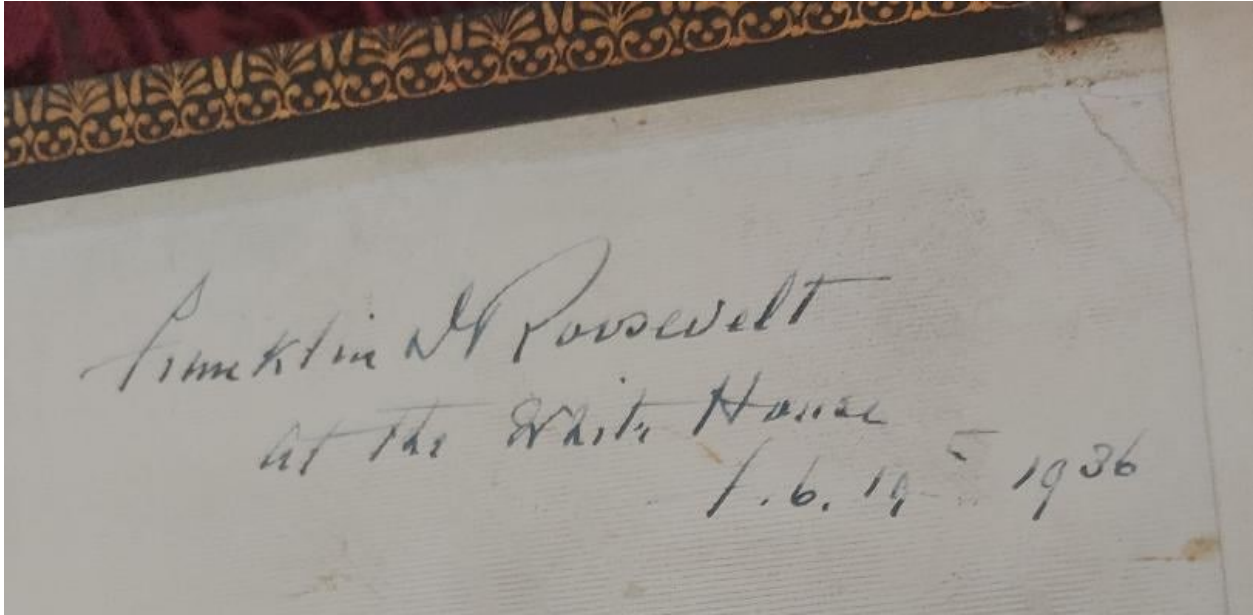 Franklin D Roosevelt
at the White House
Feb. 19 1936